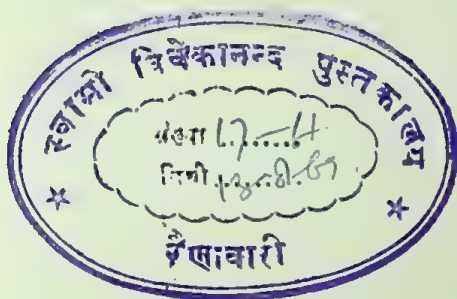 स्वामी विवेकानन्द पुस्तकालय
संख्या 17-4
तिथी
रैणावारी